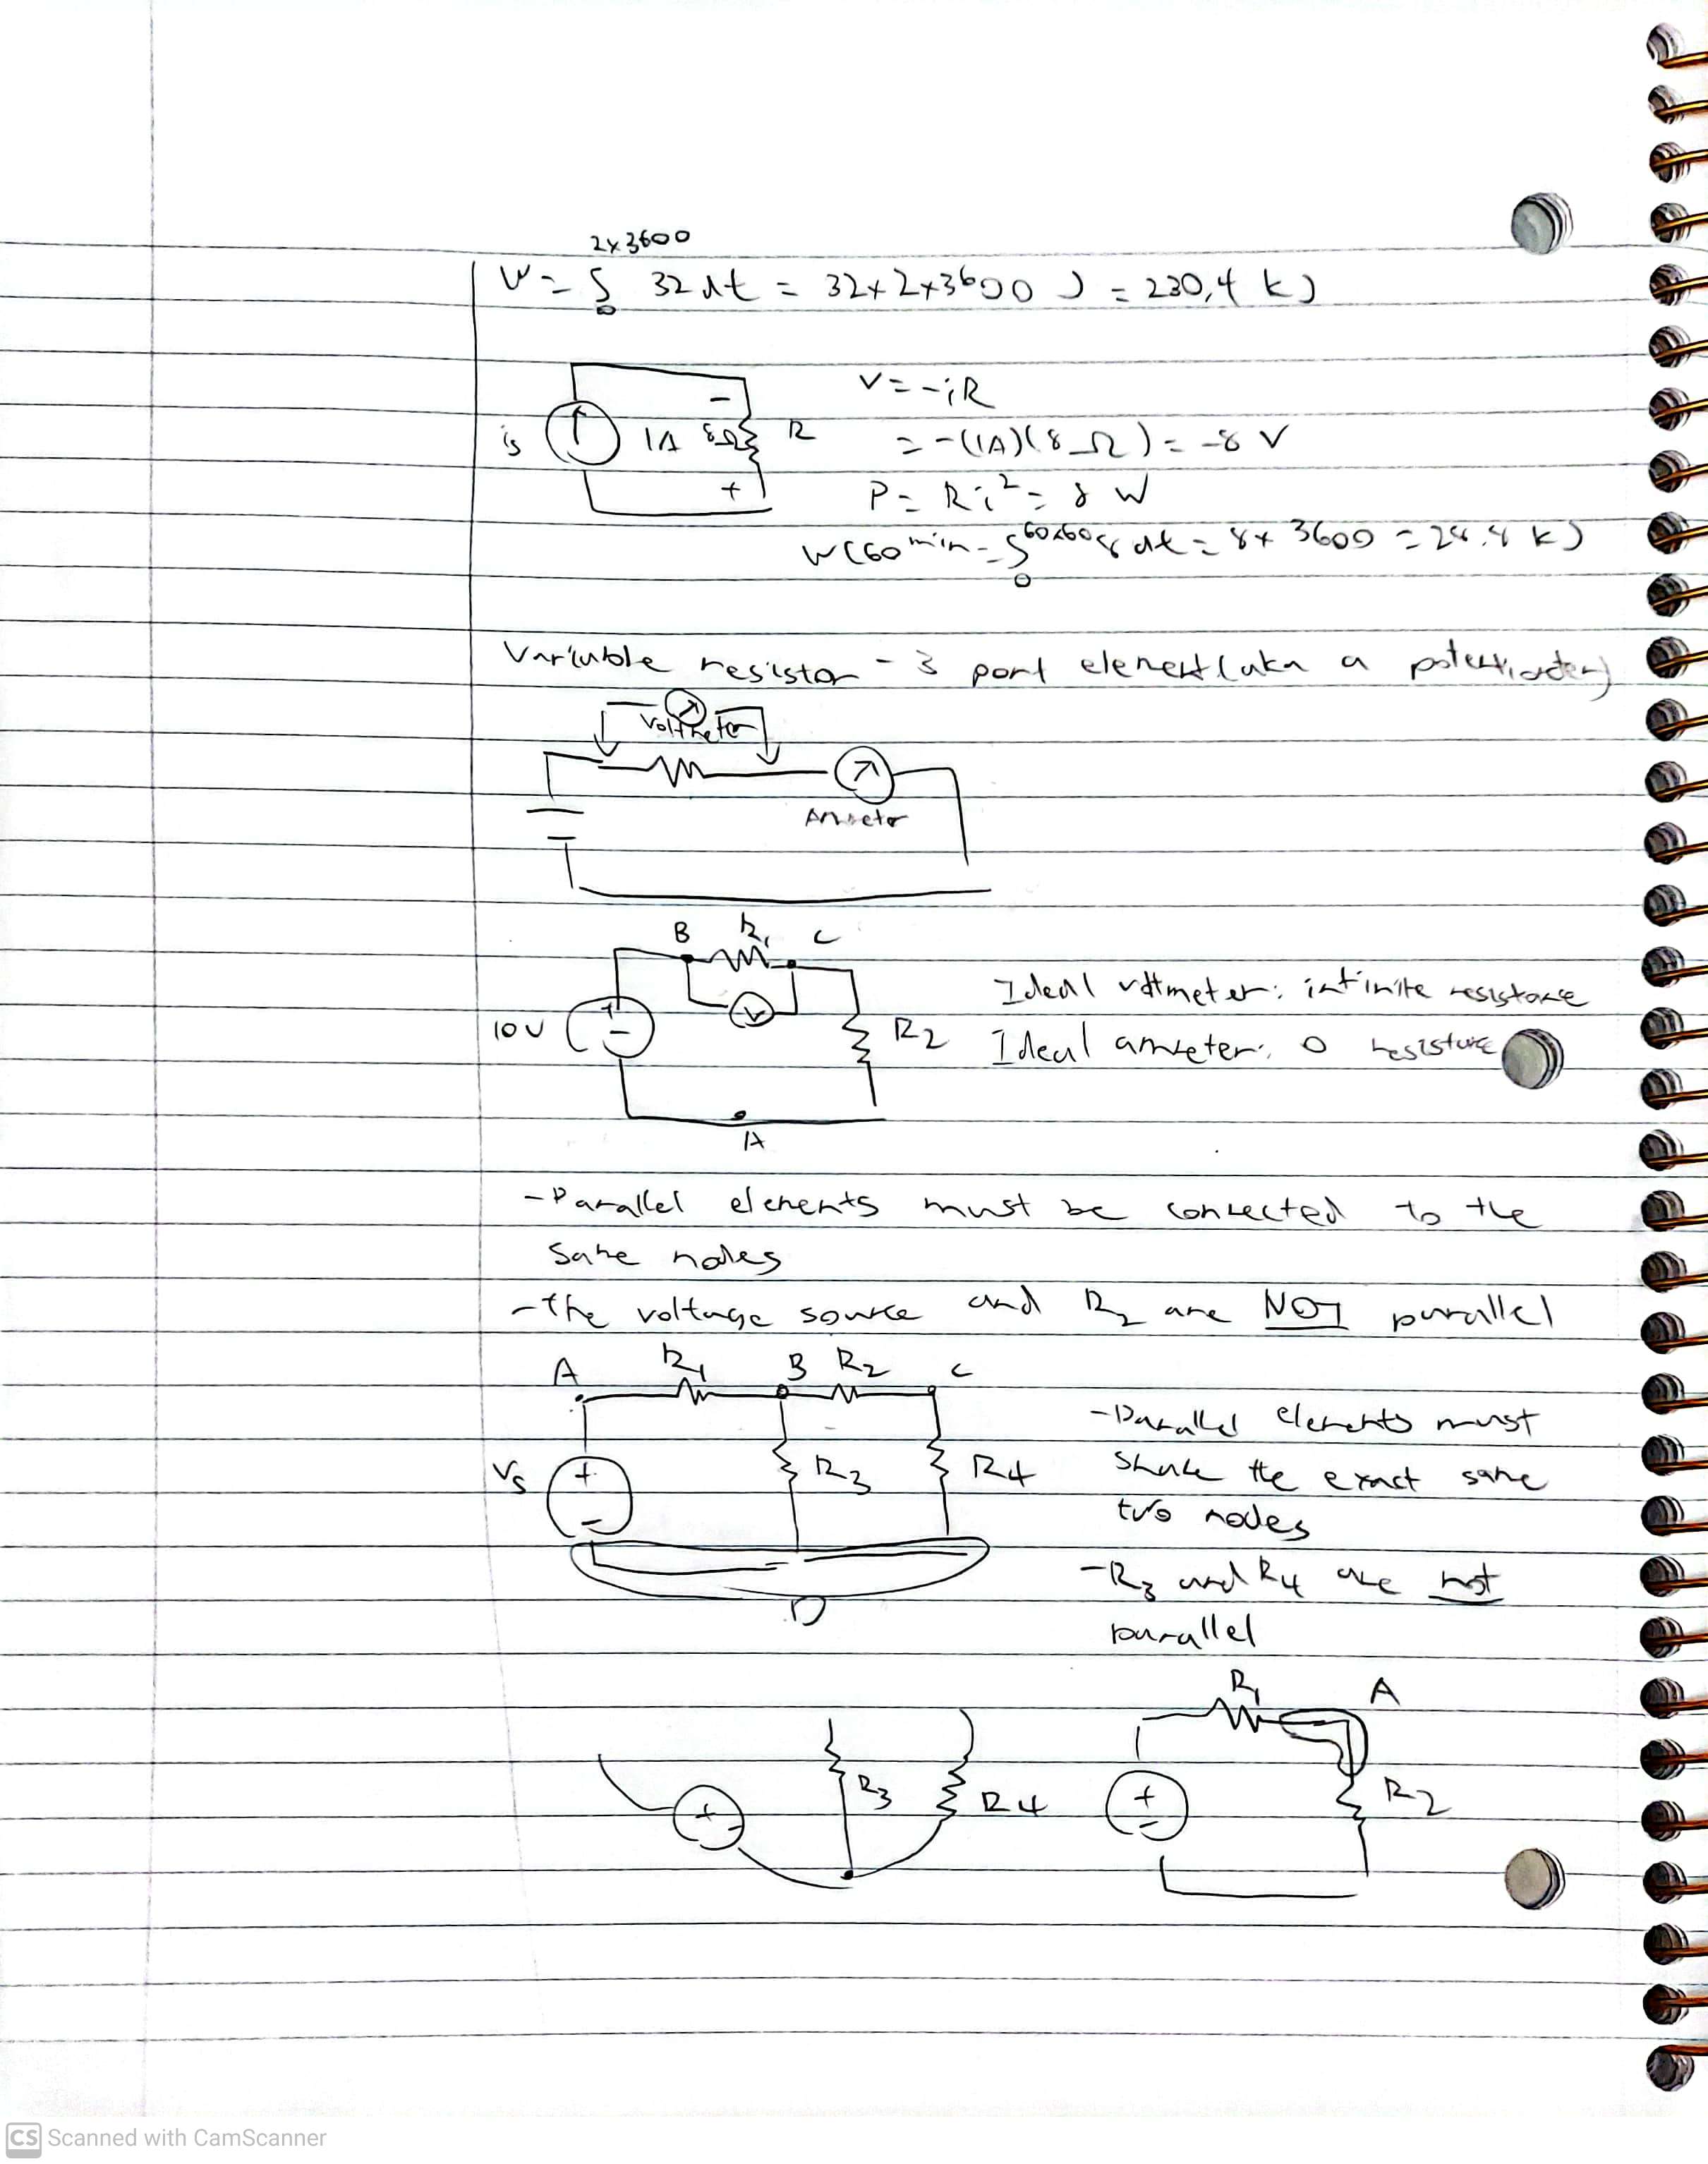 2x3600
W = ∫ 32 dt = 32x2x3600 J = 230,4 kJ
0
V = -iR
is 1A 8Ω R
- +
= -(1A)(8Ω) = -8 V
P = Ri² = 8 W
W(60 min = ∫₀^60x60 8 dt = 8x3600 = 28.8 kJ
Variable resistor - 3 port element (aka a
Voltmeter
Ammeter
B R₁ C
V
10V + - R2
Ideal voltmeter: infinite resistance
Ideal ammeter: 0 resistance
A
-Parallel elements must be connected to the
same nodes
-The voltage source and R₂ are NOT parallel
A R₁ B R₂ C
Vs + - R3 R4
D
-Parallel elements must
share the exact same
two nodes
-R₃ and R₄ are not
parallel
R₁ A
+ - R3 R4
+ - R2
CS Scanned with CamScanner